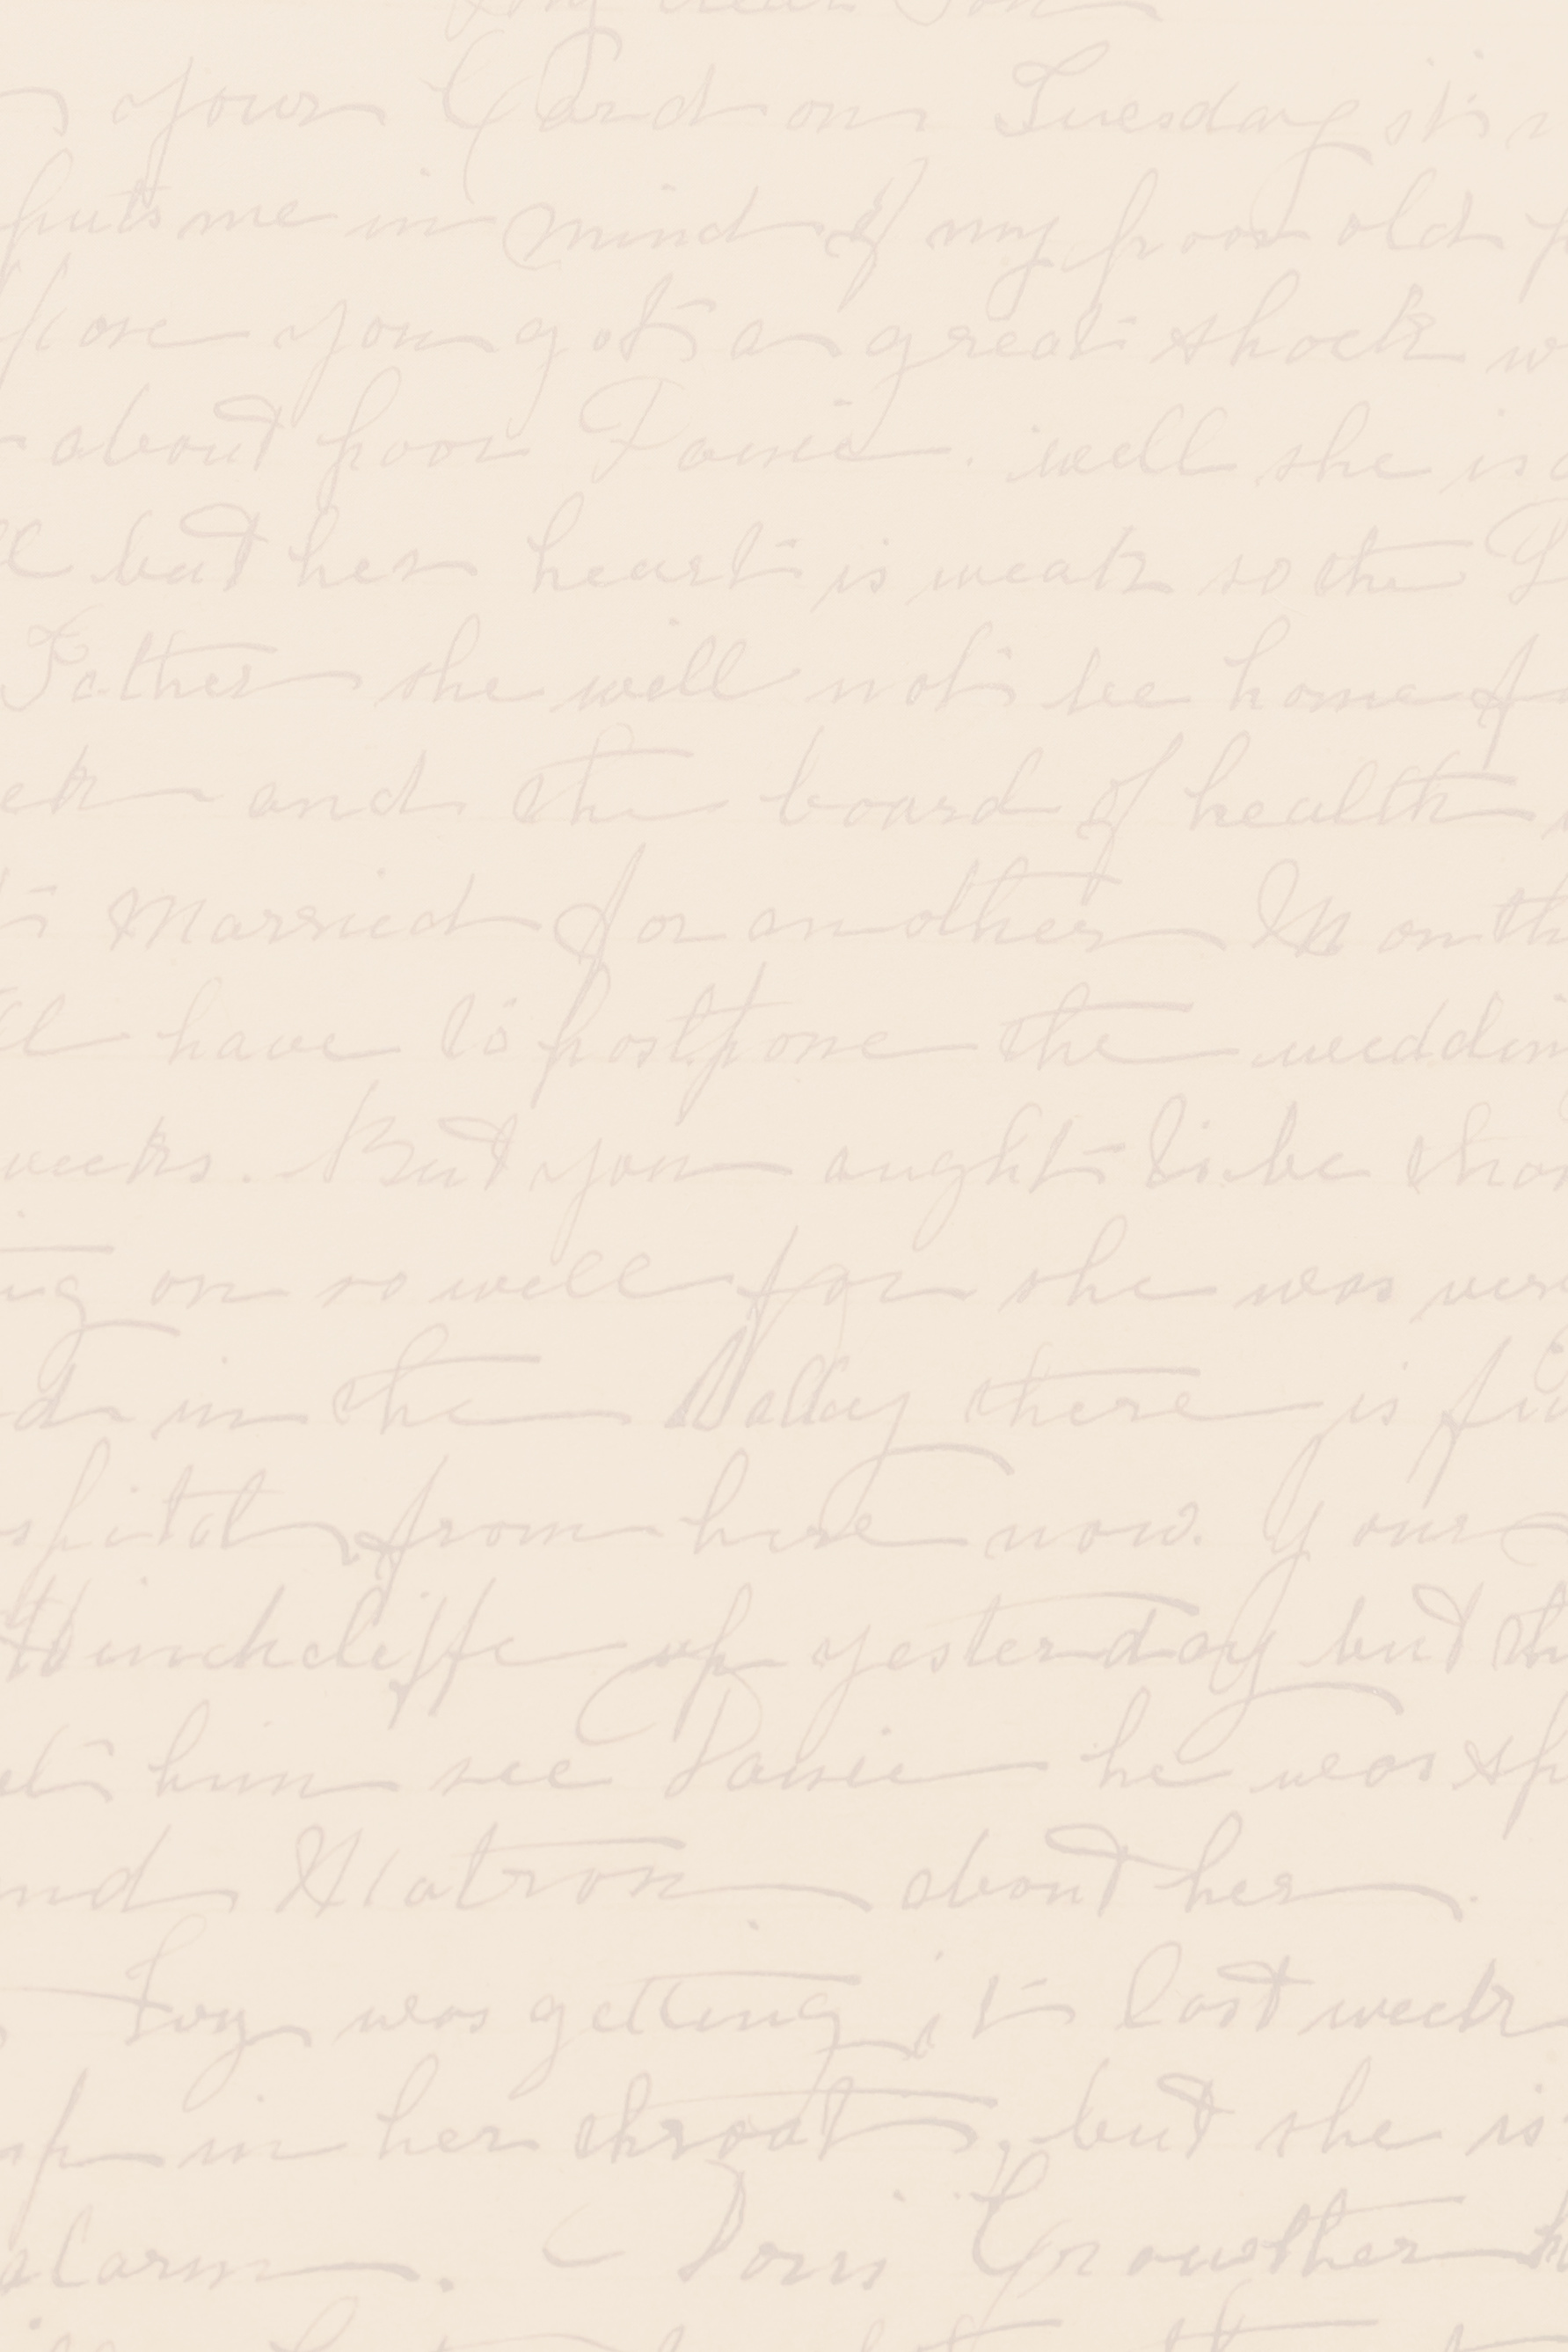 My dear Son
your Card on Tuesday it's
puts me in mind of my poor old
you got a great shock
about poor Janie. well she is
but her heart is weak so the
Father she will not be home
and the board of health
Married for another Month
have to postpone the weddin
weeks. But you aught to be
on so well for she was
in the Valley there is
from here now. Your
Hinchcliffe up yesterday but
him see Janie he was
Matron about her.
Ivy was getting it last week
in her throat, but she is
alarm. Doris Crowther